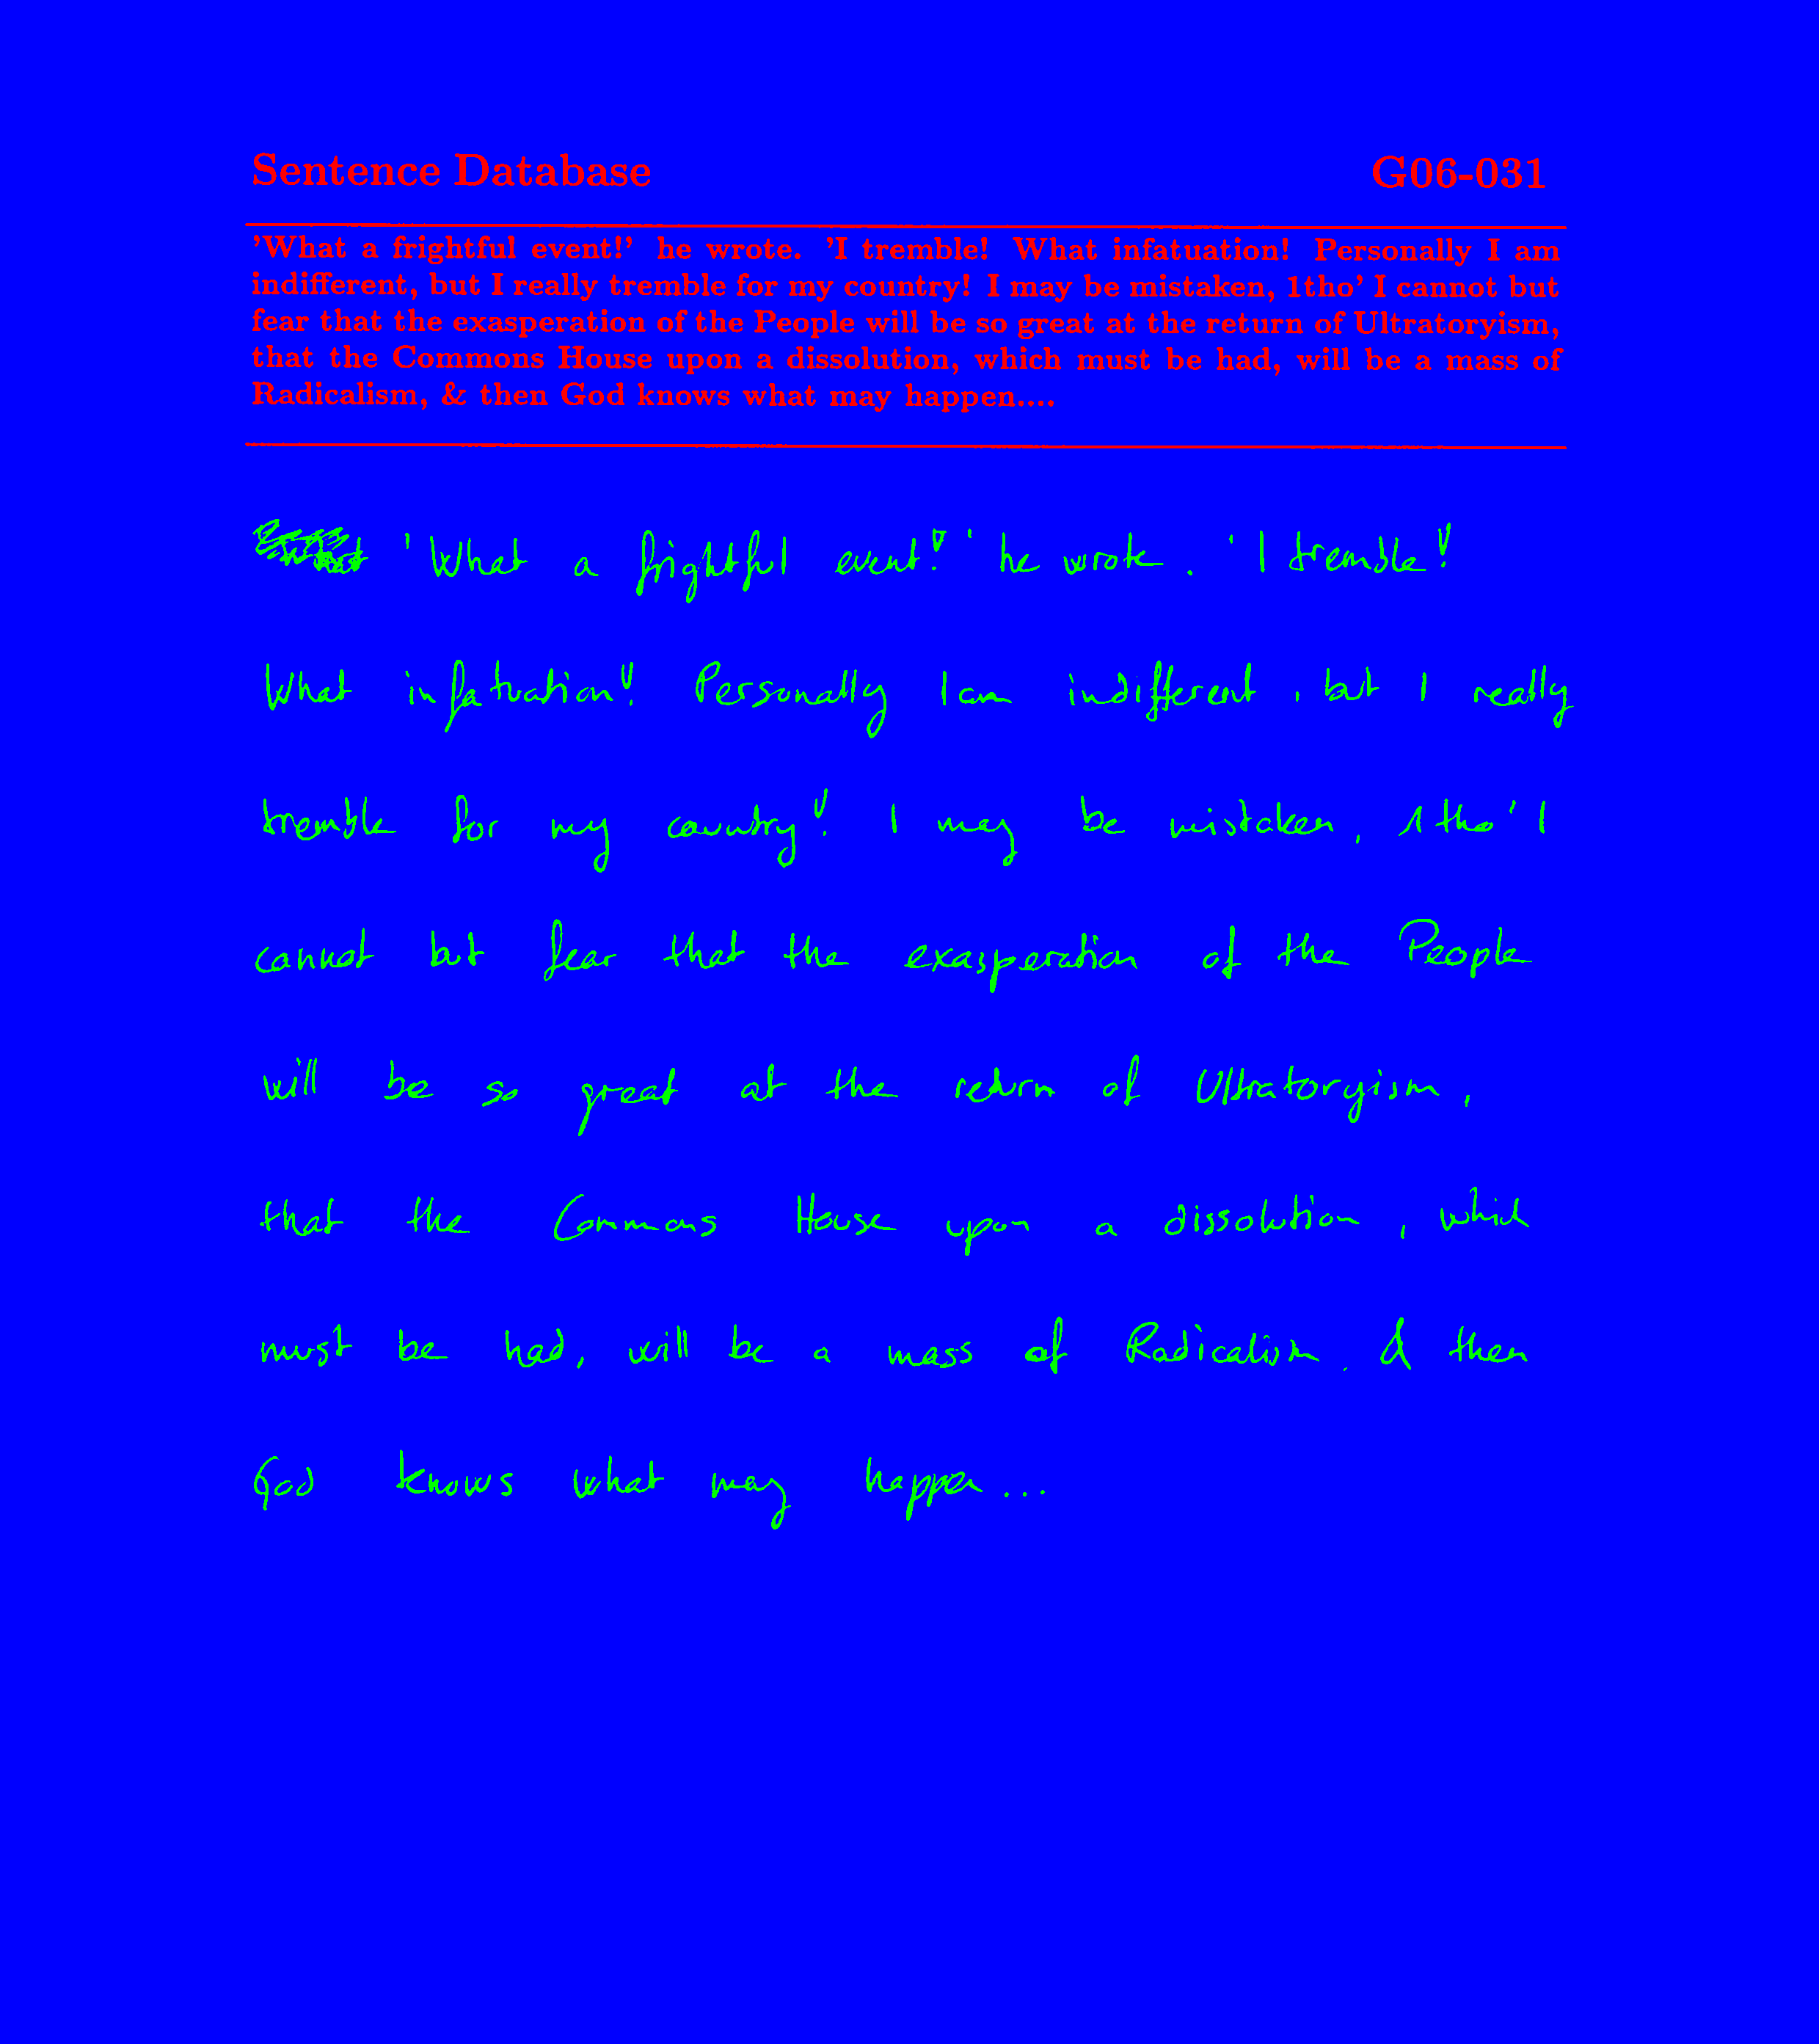 Sentence Database G06-031
'What a frightful event!' he wrote. 'I tremble! What infatuation! Personally I am
indifferent, but I really tremble for my country! I may be mistaken, 1tho' I cannot but
fear that the exasperation of the People will be so great at the return of Ultratoryism,
that the Commons House upon a dissolution, which must be had, will be a mass of
Radicalism, & then God knows what may happen....
'What a frightful event!' he wrote. 'I tremble!
What infatuation! Personally I am indifferent, but I really
tremble for my country! I may be mistaken, 1tho' I
cannot but fear that the exasperation of the People
will be so great at the return of Ultratoryism,
that the Commons House upon a dissolution, which
must be had, will be a mass of Radicalism, & then
God knows what may happen...